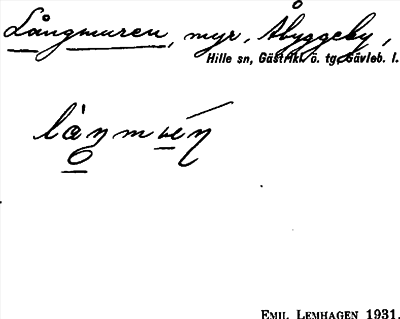 Långmuren, myr, Åbyggeby,
Hille sn, Gästrikl. ö. tg, Gävleb. l.
EMIL LEMHAGEN 1931.